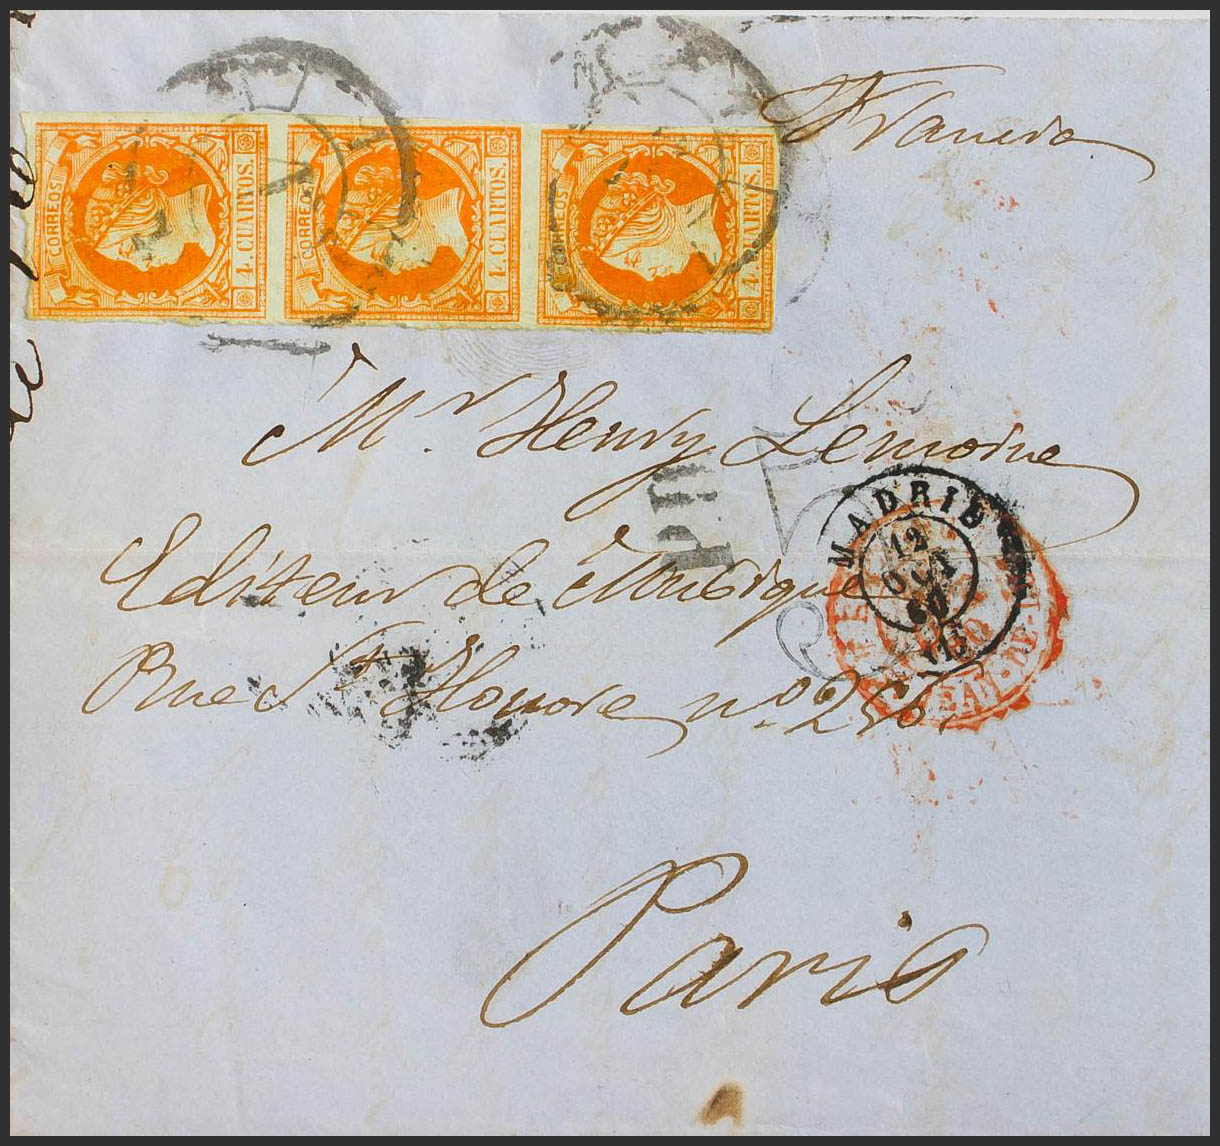 Francia
CORREOS 4 CUARTOS.
CORREOS 4 CUARTOS.
CORREOS 4 CUARTOS.
Mr. Henry Lemoine
P.D.
MADRID
12
OCT
60
Editeur de Musique
Rue St Honore nº 256.
Paris